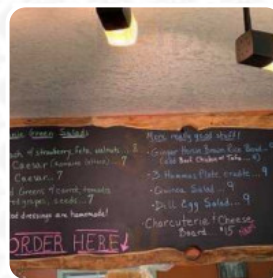 Green Salads
of strawberry, feta, walnuts...8
Caesar (romaine lettuce)...7
Caesar...7
Greens w/ carrot, tomato
grapes, seeds...7
dressings are homemade!
ORDER HERE
More really good stuff!
Brown Rice Bowl...
(add Beef Chicken or Tofu...
3 Hummus Plate, crudite...9
Quinoa Salad...9
Dill Egg Salad...9
Charcuterie & Cheese
Board...$15